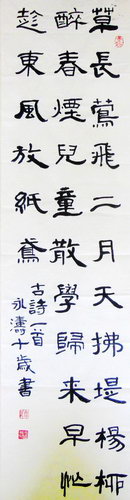 草長鶯飛二月天拂堤楊柳
醉春煙兒童散學歸来早忙
趁東風放紙鳶
古詩一首
永濤十歲書